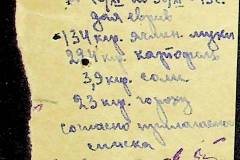 для евреев
134 кгр. ячмен. муки
294 кгр. картофель
3,9 кгр. соли
23 кгр. гороху
согласно прилагаемого
списка